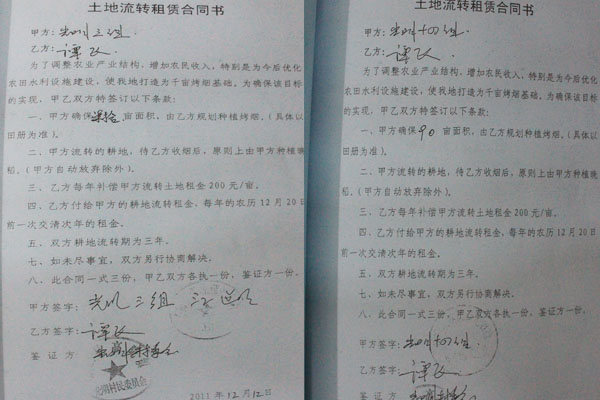 土地流转租赁合同书
甲方：光明三组
乙方：谭
为了调整农业产业结构，增加农民收入，特别是为今后优化
农田水利设施建设，使我地打造为千亩烤烟基础。为确保该目标
的实现，甲乙双方特签订以下条款：
一、甲方确保 亩面积，由乙方规划种植烤烟。（具体以
田册为准）。
二、甲方流转的耕地，待乙方收烟后，原则上由甲方种植晚
稻。（甲方自动放弃除外）。
三、乙方每年补偿甲方流转土地租金200元/亩。
四、乙方付给甲方的耕地流转租金，每年的农历12月20日
前一次交清次年的租金。
五、双方耕地流转期为三年。
七、如未尽事宜，双方另行协商解决。
八、此合同一式三份，甲乙双方各执一份，签证方一份。
甲方签字：光明三组
乙方签字：谭
签证方
光明村民委员会
2011年12月12日
土地流转租赁合同书
甲方：光明十四组
乙方：谭
为了调整农业产业结构，增加农民收入，特别是为今后优化
农田水利设施建设，使我地打造为千亩烤烟基础。为确保该目标
的实现，甲乙双方特签订以下条款：
一、甲方确保90亩面积，由乙方规划种植烤烟。（具体以
田册为准）。
二、甲方流转的耕地，待乙方收烟后，原则上由甲方种植晚
稻。（甲方自动放弃除外）。
三、乙方每年补偿甲方流转土地租金200元/亩。
四、乙方付给甲方的耕地流转租金，每年的农历12月20日
前一次交清次年的租金。
五、双方耕地流转期为三年。
七、如未尽事宜，双方另行协商解决。
八、此合同一式三份，甲乙双方各执一份，签证方一份。
甲方签字：光明十四组
乙方签字：谭
签证方